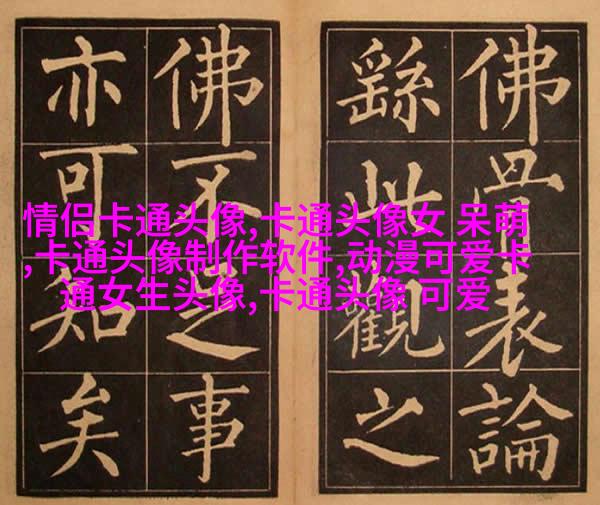 佛骨表論
繇此觀之
佛不足事
亦可知矣
情侣卡通头像,卡通头像女 呆萌
,卡通头像制作软件,动漫可爱卡
通女生头像,卡通头像 可爱